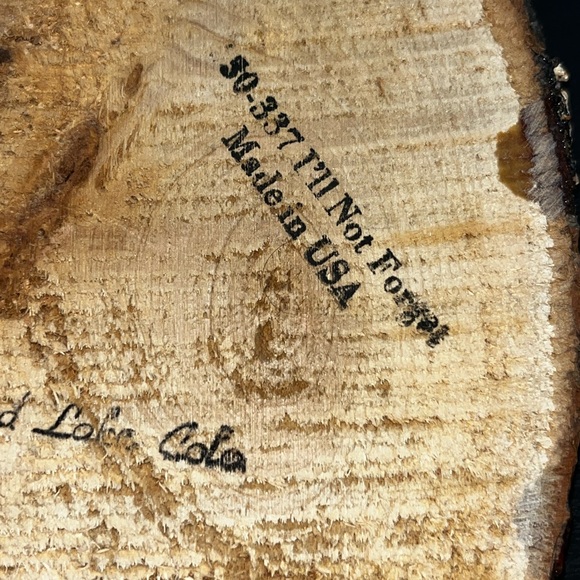 50-337 I'll Not Forget
Made in USA
d Lake, Colo